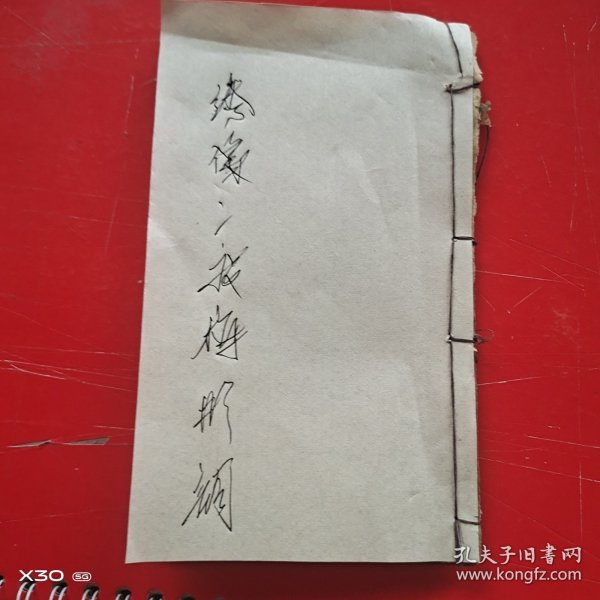 绣像二度梅
X30 5G
孔夫子旧書网
www.kongfz.com